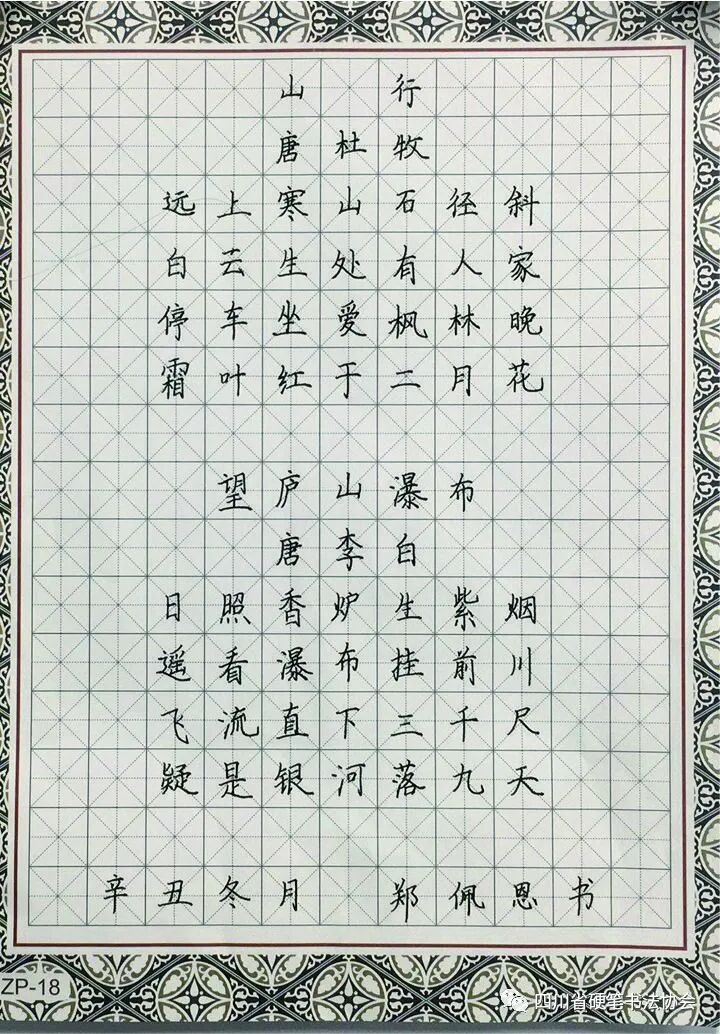 山 行
唐 杜 牧
远上寒山石径斜
白云生处有人家
停车坐爱枫林晚
霜叶红于二月花
望庐山瀑布
唐李白
日照香炉生紫烟
遥看瀑布挂前川
飞流直下三千尺
疑是银河落九天
辛丑冬月 郑佩恩书
ZP-18
四川省硬笔书法协会